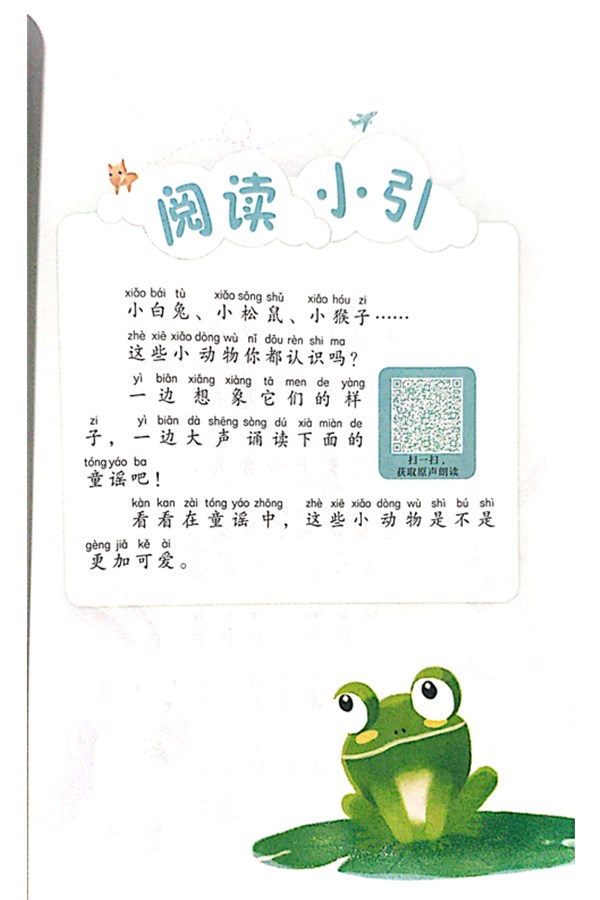 阅读 小引
xiǎo bái tù xiǎo sōng shǔ xiǎo hóu zi
小白兔、小松鼠、小猴子……
zhè xiē xiǎo dòng wù nǐ dōu rèn shi ma
这些小动物你都认识吗？
yì biān xiǎng xiàng tā men de yàng
一边想象它们的样
zi yì biān dà shēng sòng dú xià miàn de
子，一边大声诵读下面的
tóng yáo ba
童谣吧！
扫一扫，
获取原声朗读
kàn kan zài tóng yáo zhōng zhè xiē xiǎo dòng wù shì bú shì
看看在童谣中，这些小动物是不是
gèng jiā kě ài
更加可爱。